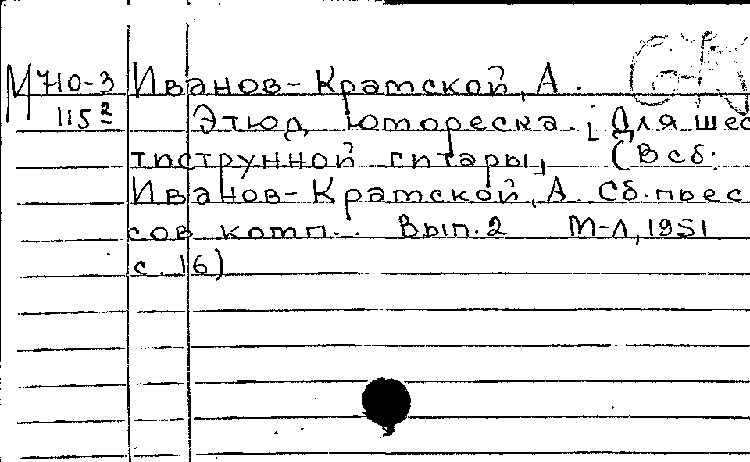 М 710-3 Иванов-Крамской, А.
115² Этюд, юмореска. [Для шес
тиструнной гитары, (В сб:
Иванов-Крамской, А. Сб. пьес
сов. комп. Вып. 2 М-Л, 1951
с. 16)